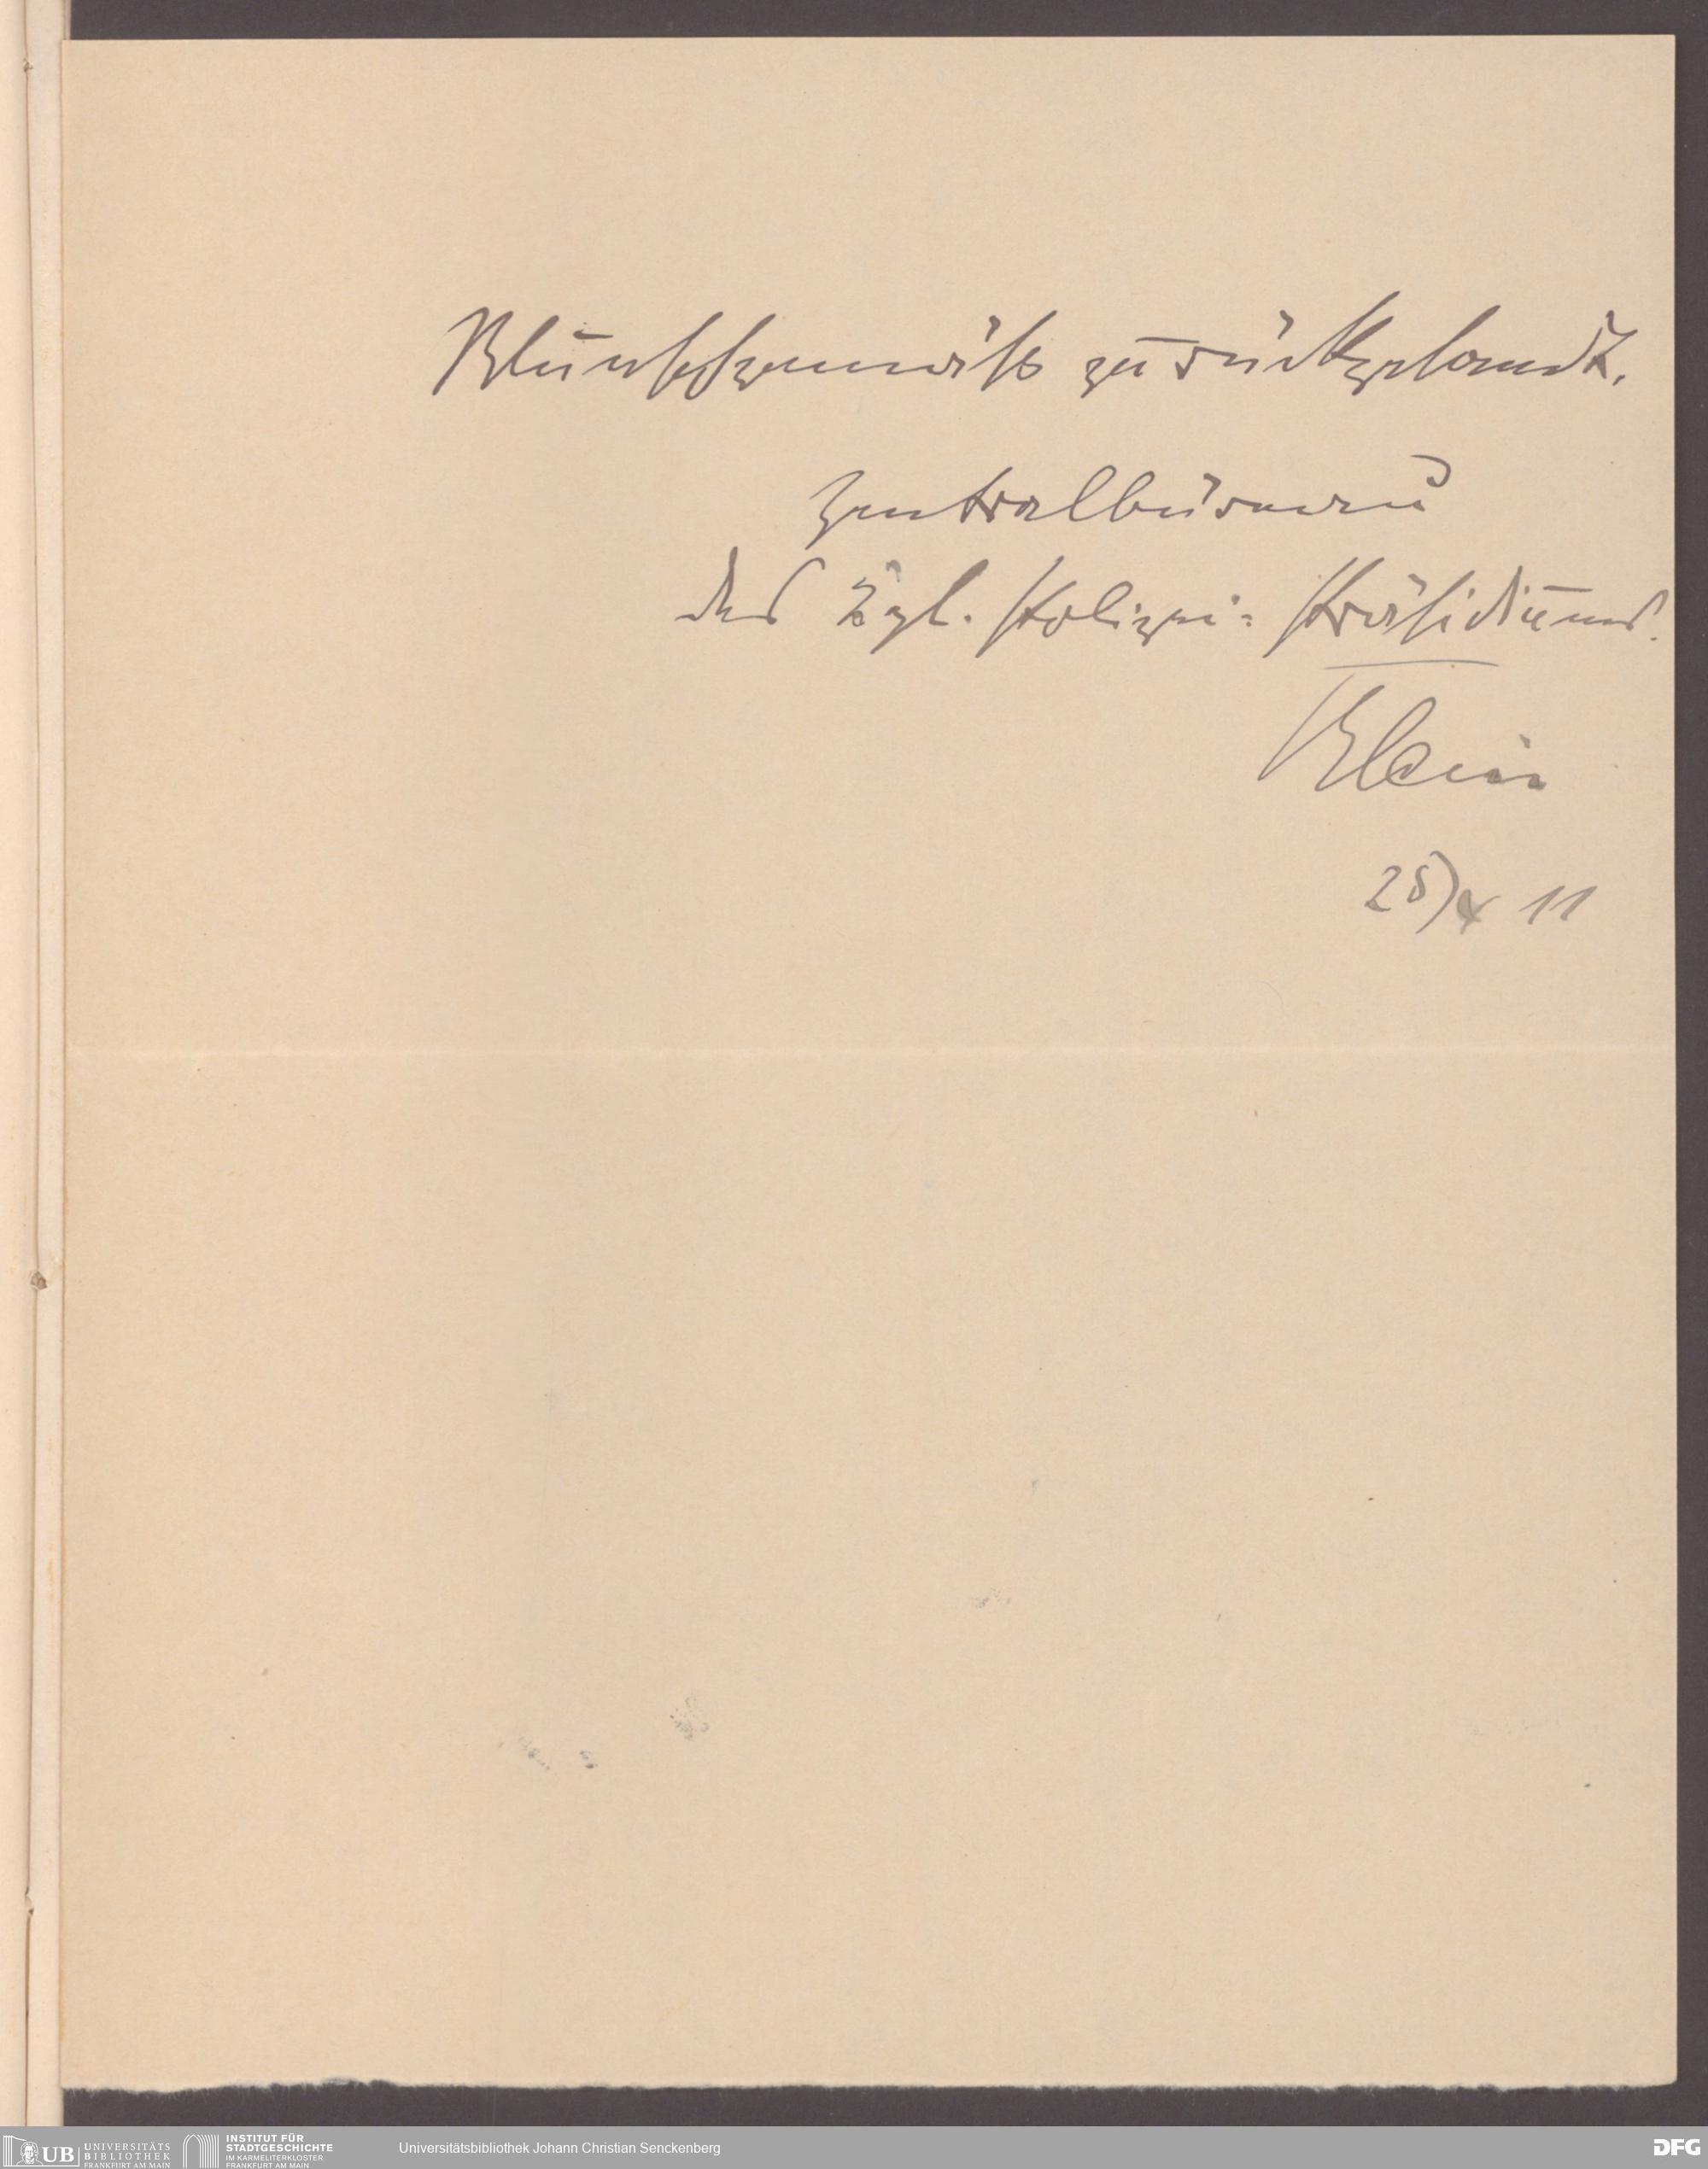 Wunschgemäß zurückgesandt.
Zentralbüreau
des Kgl. Polizei-Präsidiums.
Klein
25/X 11
UB UNIVERSITÄTS BIBLIOTHEK FRANKFURT AM MAIN
INSTITUT FÜR STADTGESCHICHTE IM KARMELITERKLOSTER FRANKFURT AM MAIN
Universitätsbibliothek Johann Christian Senckenberg
DFG